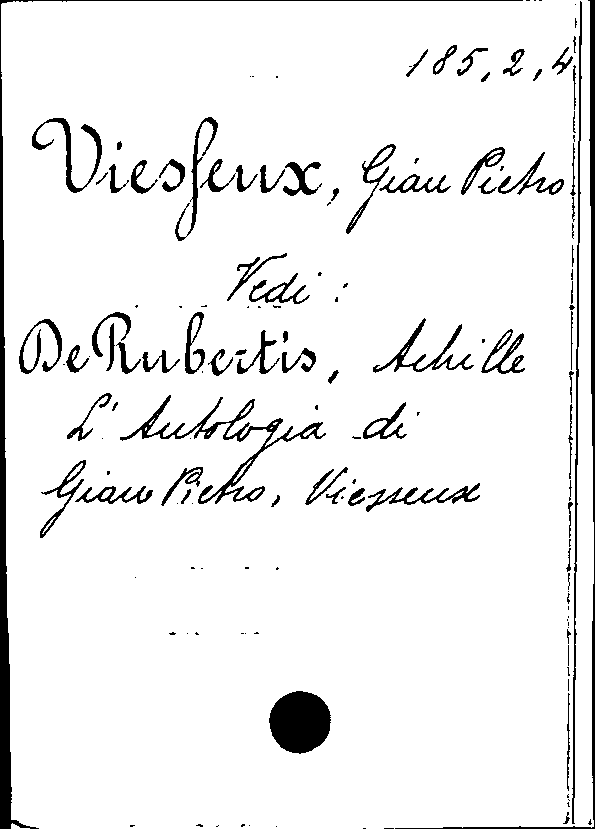 185,2,4
Viesseux, Gian Pietro
Vedi:
De Rubertis, Achille
L'Antologia di
Gian Pietro, Viesseux